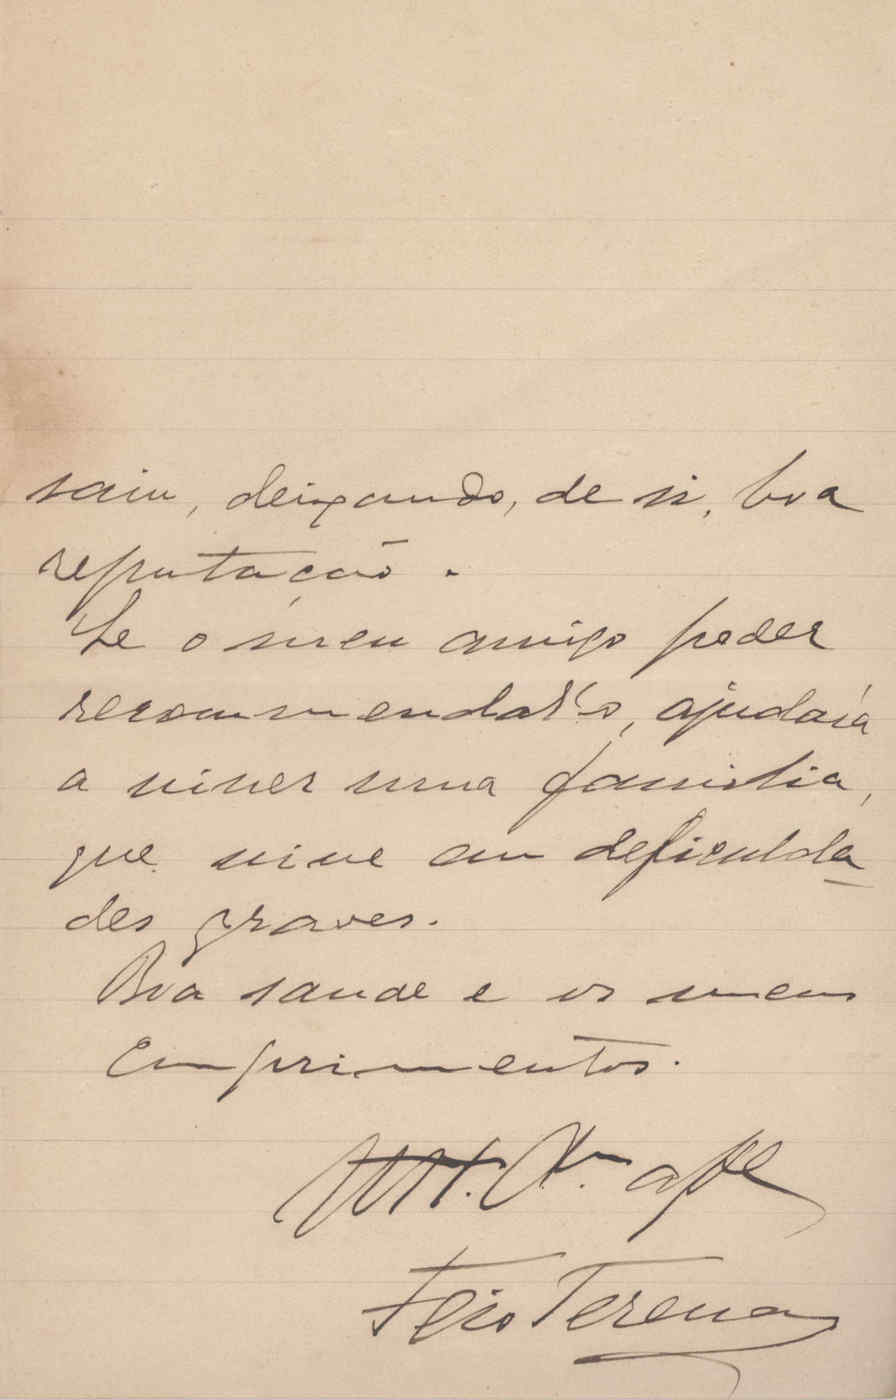 saiu, deixando, de si, boa
reputação.
Se o meu amigo poder
recommendal-o, ajudaria
a viver uma familia,
que vive em deficulda
des graves.
Boa saude e os meus
cumprimentos.
Mt. Am. afº
Feio Terenas